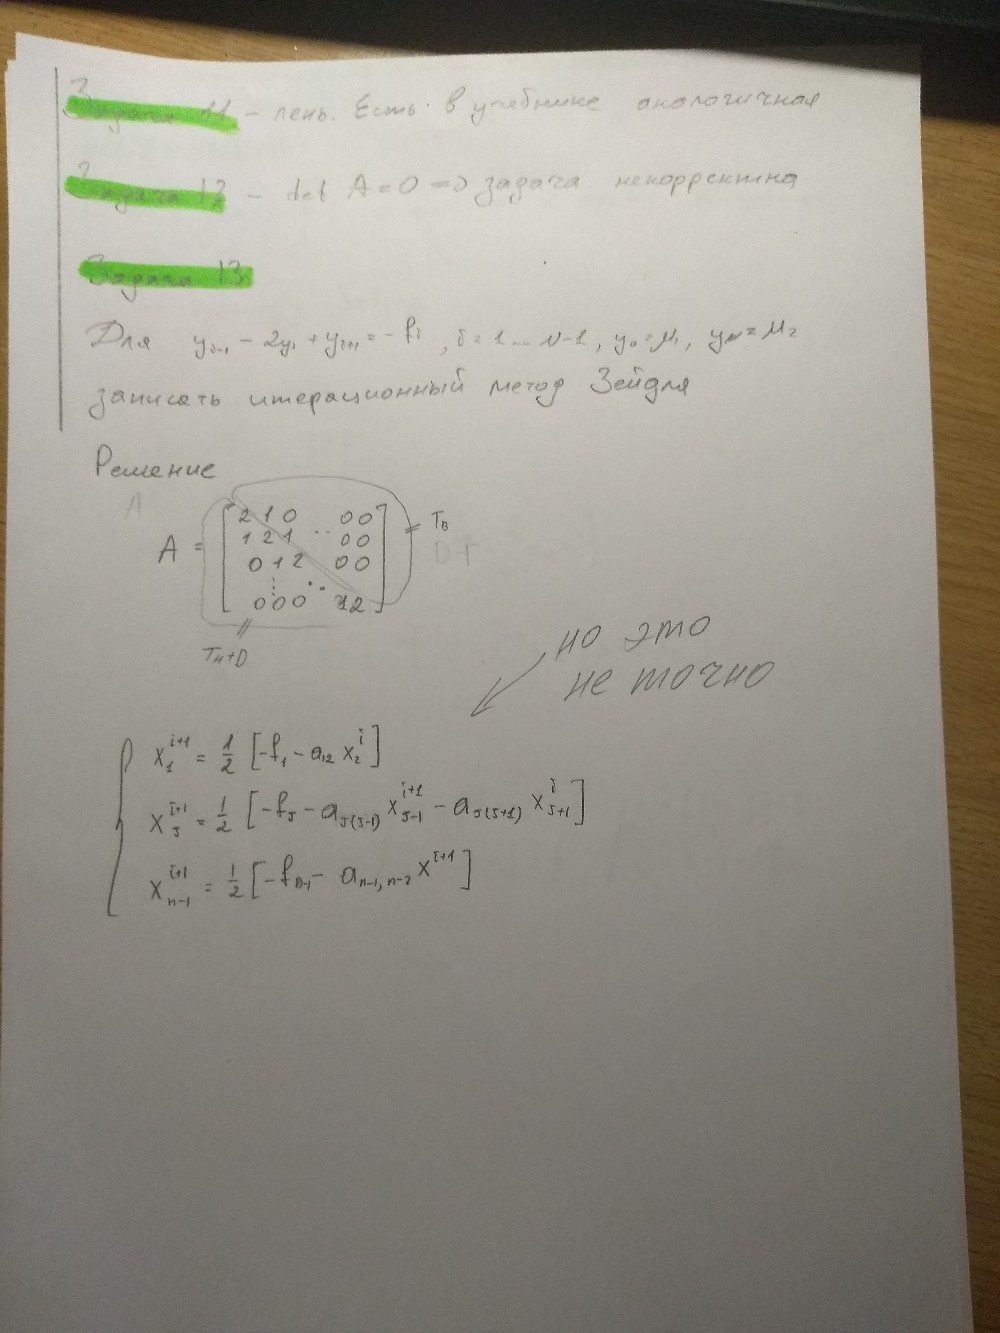 Задача 11 – лень. Есть в учебнике аналогичная
Задача 12 – det A = 0 => задача некорректна
Задача 13.
Для y_{i-1} - 2y_i + y_{i+1} = - f_i , i = 1 ... N-1, y_0 = μ_1, y_N = μ_2
записать итерационный метод Зейделя
Решение
A = [
2 1 0 0 0
1 2 1 ... 0 0
0 1 2 0 0
⋮ ⋱
0 0 0 1 2
]
= T_B
T_H+D
но это
не точно
x_1^{i+1} = 1/2 [-f_1 - a_{12} x_2^i]
x_j^{i+1} = 1/2 [-f_j - a_{j(j-1)} x_{j-1}^{i+1} - a_{j(j+1)} x_{j+1}^i]
x_{n-1}^{i+1} = 1/2 [-f_{n-1} - a_{n-1, n-2} x^{i+1}]